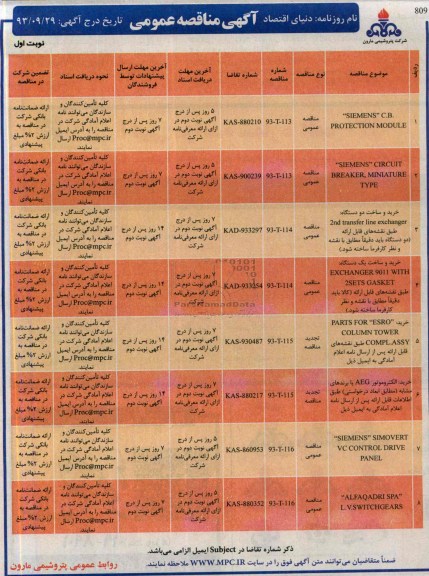 809
نام روزنامه: دنیای اقتصاد
آگهی مناقصه عمومی
تاریخ درج آگهی: ۹۳/۰۹/۲۹
شرکت پتروشیمی مارون
نوبت اول
ردیف
موضوع مناقصه
نوع مناقصه
شماره مناقصه
شماره تقاضا
آخرین مهلت دریافت اسناد
آخرین مهلت ارسال پیشنهادات توسط فروشندگان
نحوه دریافت اسناد
تضمین شرکت در مناقصه
۱
"SIEMENS" C.B.
PROTECTION MODULE
مناقصه عمومی
93-T-113
KAS-880210
۵ روز پس از درج آگهی نوبت دوم در ازای ارائه معرفی‌نامه شرکت
۷ روز پس از درج آگهی نوبت دوم
کلیه تأمین‌کنندگان و سازندگان می‌توانند نامه اعلام آمادگی شرکت در مناقصه را به آدرس ایمیل Proc@mpc.ir ارسال نمایند.
ارائه ضمانتنامه بانکی شرکت در مناقصه به ارزش ۲% مبلغ پیشنهادی
۲
"SIEMENS" CIRCUIT
BREAKER, MINIATURE
TYPE
مناقصه عمومی
93-T-113
KAS-900239
۵ روز پس از درج آگهی نوبت دوم در ازای ارائه معرفی‌نامه شرکت
۷ روز پس از درج آگهی نوبت دوم
کلیه تأمین‌کنندگان و سازندگان می‌توانند نامه اعلام آمادگی شرکت در مناقصه را به آدرس ایمیل Proc@mpc.ir ارسال نمایند.
ارائه ضمانتنامه بانکی شرکت در مناقصه به ارزش ۲% مبلغ پیشنهادی
۳
خرید و ساخت دو دستگاه
2nd transfer line exchanger
طبق نقشه‌های قابل ارائه
(دو دستگاه باید دقیقاً مطابق با نقشه و نظر کارفرما ساخته شود.)
مناقصه عمومی
93-T-114
KAD-933297
۷ روز پس از درج آگهی نوبت دوم در ازای ارائه معرفی‌نامه شرکت
۱۴ روز پس از درج آگهی نوبت دوم
کلیه تأمین‌کنندگان و سازندگان می‌توانند نامه اعلام آمادگی شرکت در مناقصه را به آدرس ایمیل Proc@mpc.ir ارسال نمایند.
ارائه ضمانتنامه بانکی شرکت در مناقصه به ارزش ۲% مبلغ پیشنهادی
۴
خرید و ساخت یک دستگاه
EXCHANGER 9011 WITH
2SETS GASKET
طبق نقشه‌های قابل ارائه (کالا باید دقیقاً مطابق با نقشه و نظر کارفرما ساخته شود.)
مناقصه عمومی
93-T-114
KAD-933254
۷ روز پس از درج آگهی نوبت دوم در ازای ارائه معرفی‌نامه شرکت
۱۴ روز پس از درج آگهی نوبت دوم
کلیه تأمین‌کنندگان و سازندگان می‌توانند نامه اعلام آمادگی شرکت در مناقصه را به آدرس ایمیل Proc@mpc.ir ارسال نمایند.
ارائه ضمانتنامه بانکی شرکت در مناقصه به ارزش ۲% مبلغ پیشنهادی
۵
خرید PARTS FOR "ESRO"
COLUMN TOWER
COMPL.ASSY طبق نقشه‌های قابل ارائه پس از ارسال نامه اعلام آمادگی به ایمیل ذیل
تجدید مناقصه
93-T-115
KAS-930487
۷ روز پس از درج آگهی نوبت دوم در ازای ارائه معرفی‌نامه شرکت
۱۴ روز پس از درج آگهی نوبت دوم
کلیه تأمین‌کنندگان و سازندگان می‌توانند نامه اعلام آمادگی شرکت در مناقصه را به آدرس ایمیل Proc@mpc.ir ارسال نمایند.
ارائه ضمانتنامه بانکی شرکت در مناقصه به ارزش ۲% مبلغ پیشنهادی
۶
خرید الکتروموتور AEG یا برندهای مشابه (مطابق ابعاد درخواستی) طبق اطلاعات قابل ارائه پس از ارسال نامه اعلام آمادگی به ایمیل ذیل
تجدید مناقصه
93-T-115
KAS-880217
۷ روز پس از درج آگهی نوبت دوم در ازای ارائه معرفی‌نامه شرکت
۱۴ روز پس از درج آگهی نوبت دوم
کلیه تأمین‌کنندگان و سازندگان می‌توانند نامه اعلام آمادگی شرکت در مناقصه را به آدرس ایمیل Proc@mpc.ir ارسال نمایند.
ارائه ضمانتنامه بانکی شرکت در مناقصه به ارزش ۲% مبلغ پیشنهادی
۷
"SIEMENS" SIMOVERT
VC CONTROL DRIVE
PANEL
مناقصه عمومی
93-T-116
KAS-860953
۵ روز پس از درج آگهی نوبت دوم در ازای ارائه معرفی‌نامه شرکت
۷ روز پس از درج آگهی نوبت دوم
کلیه تأمین‌کنندگان و سازندگان می‌توانند نامه اعلام آمادگی شرکت در مناقصه را به آدرس ایمیل Proc@mpc.ir ارسال نمایند.
ارائه ضمانتنامه بانکی شرکت در مناقصه به ارزش ۲% مبلغ پیشنهادی
۸
"ALFAQADRI SPA"
L.V.SWITCHGEARS
مناقصه عمومی
93-T-116
KAS-880352
۵ روز پس از درج آگهی نوبت دوم در ازای ارائه معرفی‌نامه شرکت
۷ روز پس از درج آگهی نوبت دوم
کلیه تأمین‌کنندگان و سازندگان می‌توانند نامه اعلام آمادگی شرکت در مناقصه را به آدرس ایمیل Proc@mpc.ir ارسال نمایند.
ارائه ضمانتنامه بانکی شرکت در مناقصه به ارزش ۲% مبلغ پیشنهادی
ذکر شماره تقاضا در Subject ایمیل الزامی می‌باشد.
ضمناً متقاضیان می‌توانند متن آگهی فوق را در سایت WWW.MPC.IR ملاحظه نمایند.
روابط عمومی پتروشیمی مارون